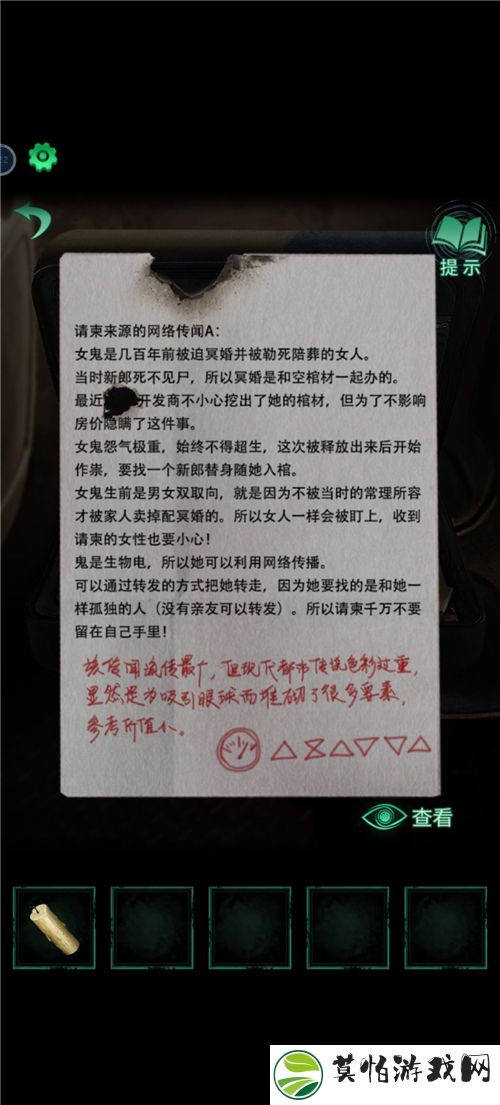 提示
请柬来源的网络传闻A：
女鬼是几百年前被迫冥婚并被勒死陪葬的女人。
当时新郎死不见尸，所以冥婚是和空棺材一起办的。
最近 开发商不小心挖出了她的棺材，但为了不影响
房价隐瞒了这件事。
女鬼怨气极重，始终不得超生，这次被释放出来后开始
作祟，要找一个新郎替身随她入棺。
女鬼生前是男女双取向，就是因为不被当时的常理所容
才被家人卖掉配冥婚的。所以女人一样会被盯上，收到
请柬的女性也要小心！
鬼是生物电，所以她可以利用网络传播。
可以通过转发的方式把她转走，因为她要找的是和她一
样孤独的人（没有亲友可以转发）。所以请柬千万不要
留在自己手里！
该传闻流传最广，但现代都市传说色彩过重，
显然是为吸引眼球而堆砌了很多要素，
参考价值小。
查看
莫怕游戏网